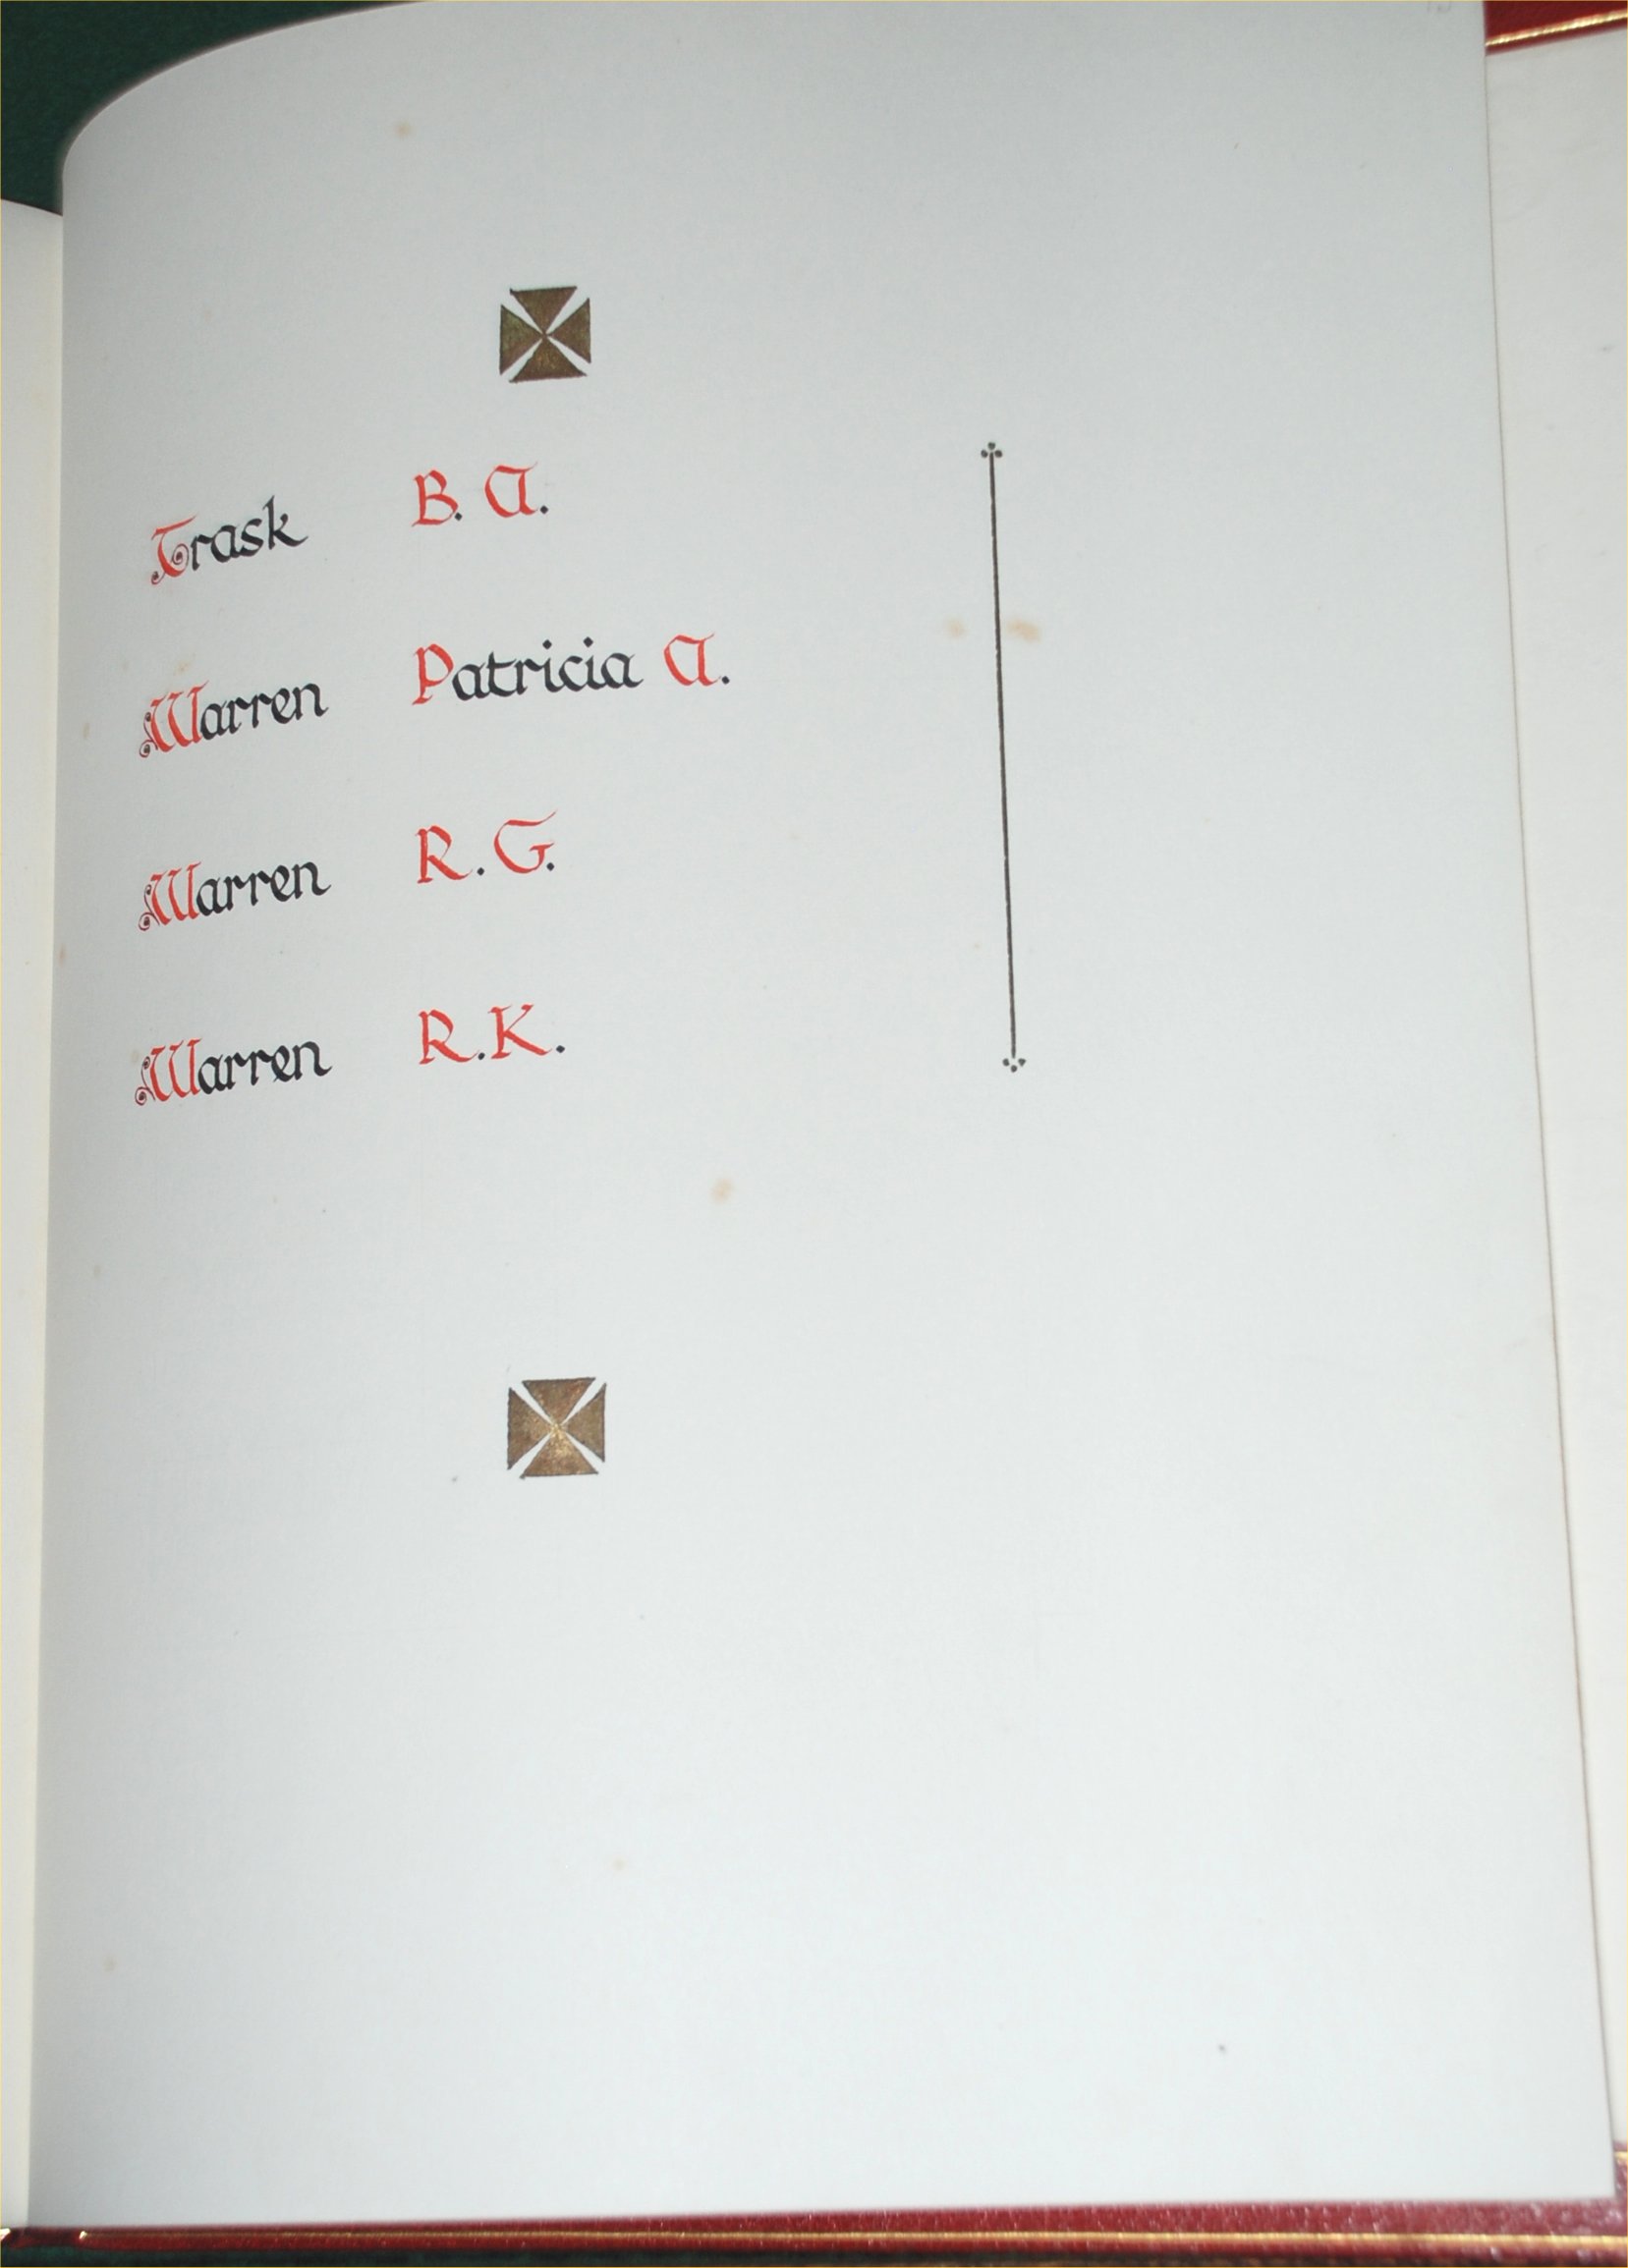 Trask B. A.
Warren Patricia A.
Warren R. G.
Warren R. K.